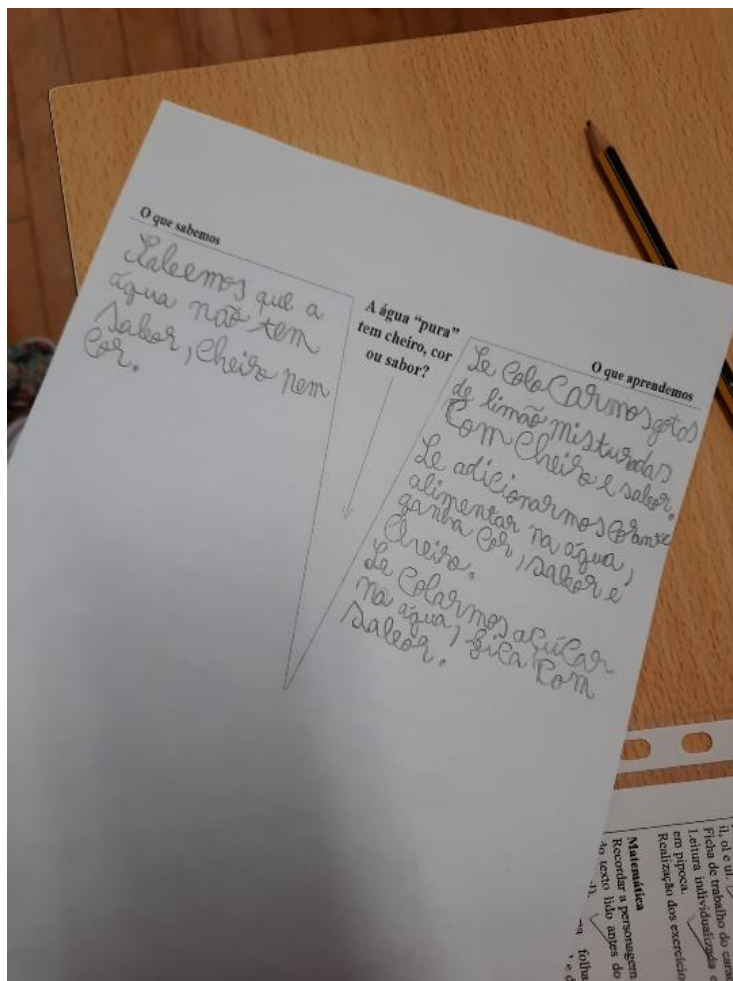 O que sabemos
Sabemos que a
água não tem
sabor, cheiro nem
cor.
A água “pura”
tem cheiro, cor
ou sabor?
O que aprendemos
Se colocarmos gotas
de limão misturadas
com cheiro e sabor.
Se adicionarmos corante
alimentar na água,
ganha cor, sabor e
cheiro.
Se colarmos açúcar
na água, fica com
sabor.
il, ol e ul.
Ficha de trabalho do
Leitura individualizada
em pipoca.
Realização dos exercício
Matemática
Recordar a personagem
do texto lido antes do
folha